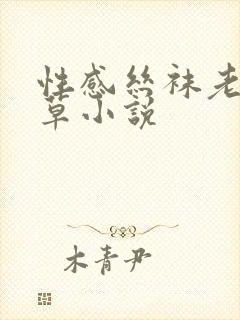 性感丝袜老
草小說
木青尹